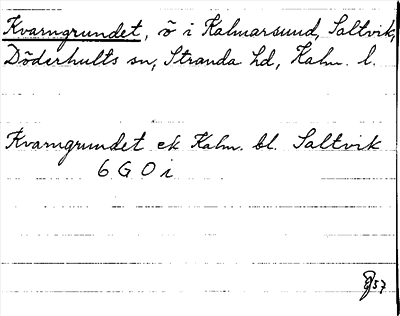 Kvarngrundet, ö i Kalmarsund, Saltvik,
Döderhults sn, Stranda hd, Kalm. l.
Kvarngrundet ek Kalm. bl. Saltvik
6 G O i
57